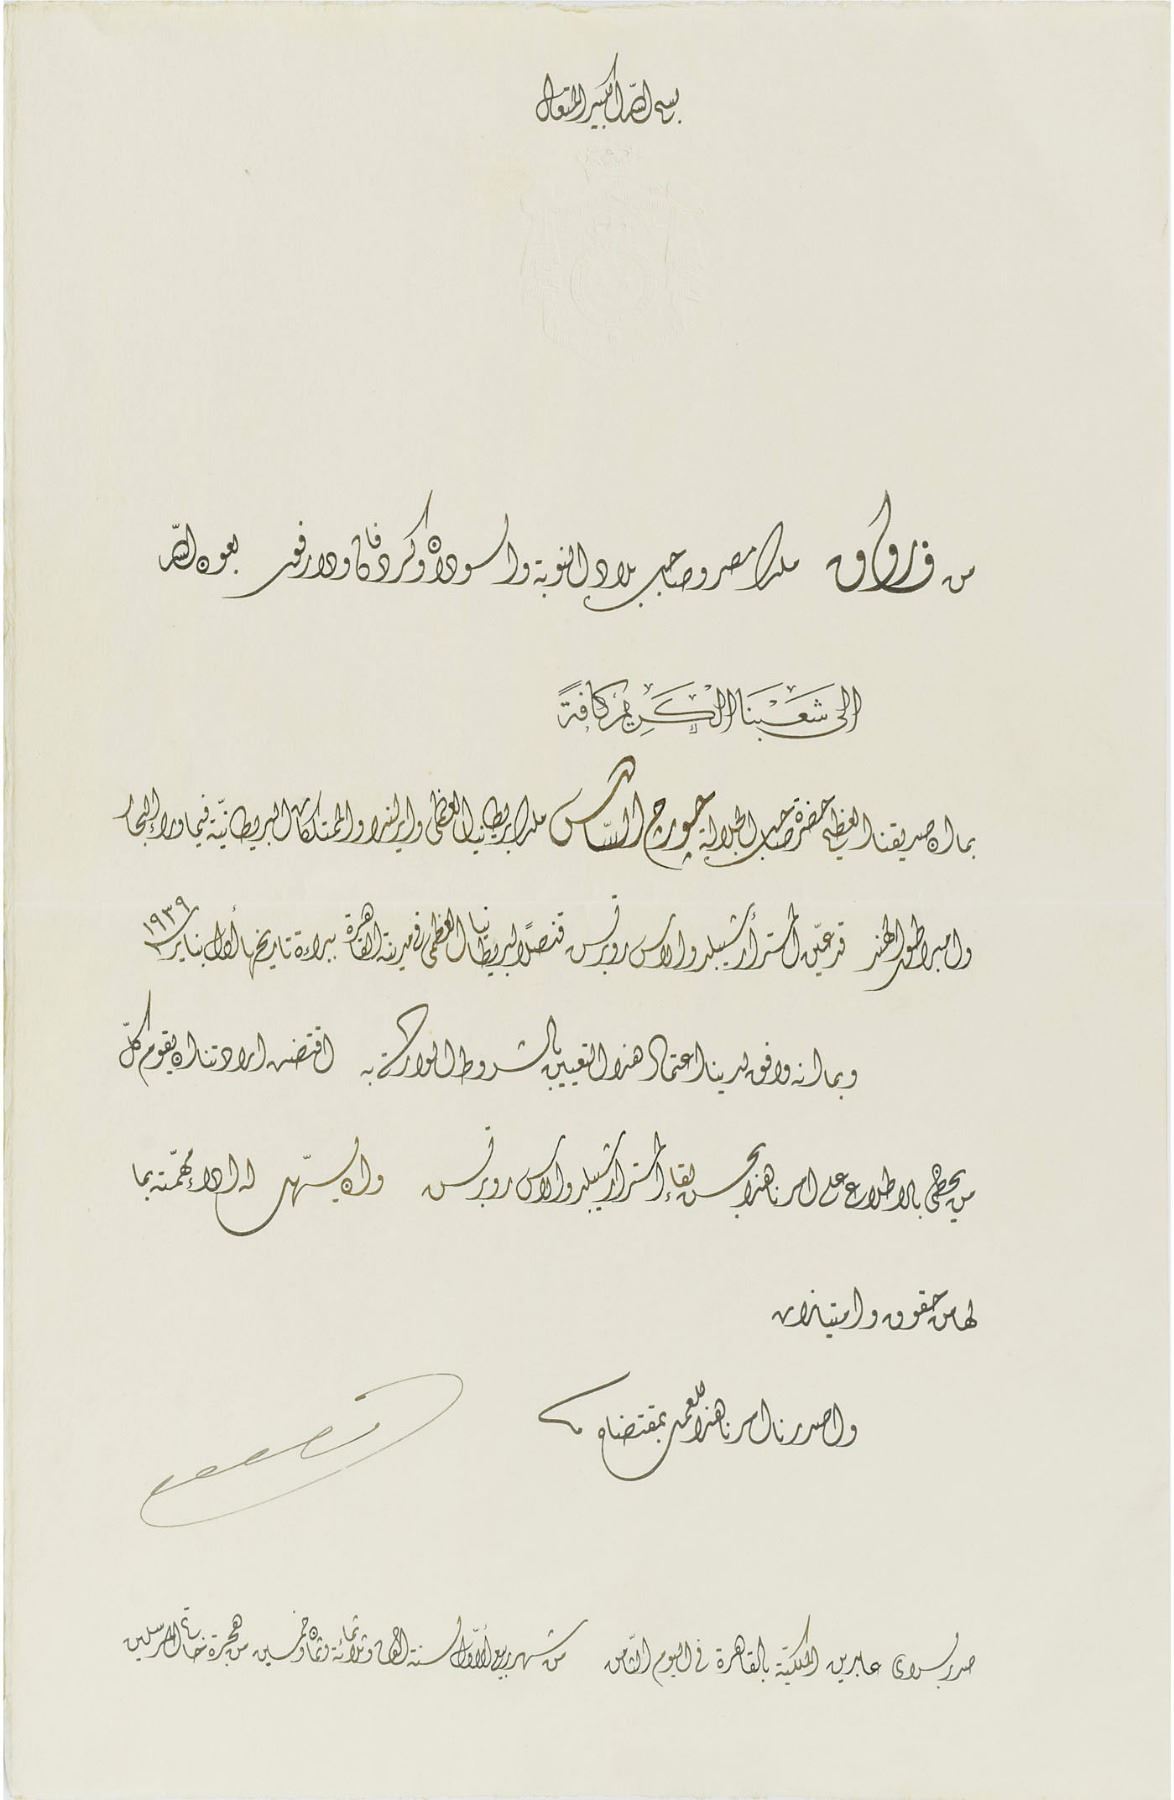 بسم الله الكبير المتعال
من فاروق ملك مصر وصاحب بلاد النوبة والسودان وكردفان ودارفور بعون الله
الى شعبنا الكريم كافة
بما ان صديقنا العظيم حضرة صاحب الجلالة جورج السادس ملك بريطانيا العظمى وايرلندا والممتلكات البريطانية فيما وراء البحار
وامبراطور الهند قد عين المستر أرشيبلد والاس روبرتس قنصلًا لبريطانيا العظمى في مدينة القاهرة ببراءة تاريخها أول يناير ١٩٣٩
وبما انه وافق لدينا اعتماد هذا التعيين بالشروط الواردة به اقتضت ارادتنا ان يقوم كلّ
من يحظى بالاطلاع على امرنا هذا بحسن لقاء المستر أرشيبلد والاس روبرتس وان يسهّل له اداء مهمّته بما
لها من حقوق وامتيازات
واصدرنا امرنا هذا للعمل بمقتضاه
صدر بسراى عابدين الملكية بالقاهرة في اليوم الثامن من شهر ربيع الأول سنة الف وثلاثمائة وثمان وخمسين من هجرة خاتم المرسلين